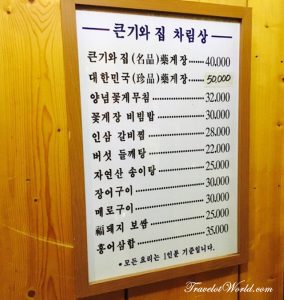 큰기와 집 차림상
큰기와 집 (名品) 藥게장 40.000
대한민국 (珍品) 藥게장 50.000
양념꽃게무침 32.000
꽃게장 비빔밥 30.000
인삼 갈비찜 28.000
버섯 들깨탕 22.000
자연산 송이탕 25.000
장어구이 30.000
메로구이 30.000
福돼지 보쌈 25.000
홍어삼합 35.000
*모든 요리는 1인분 기준입니다.
TravelotWorld.com